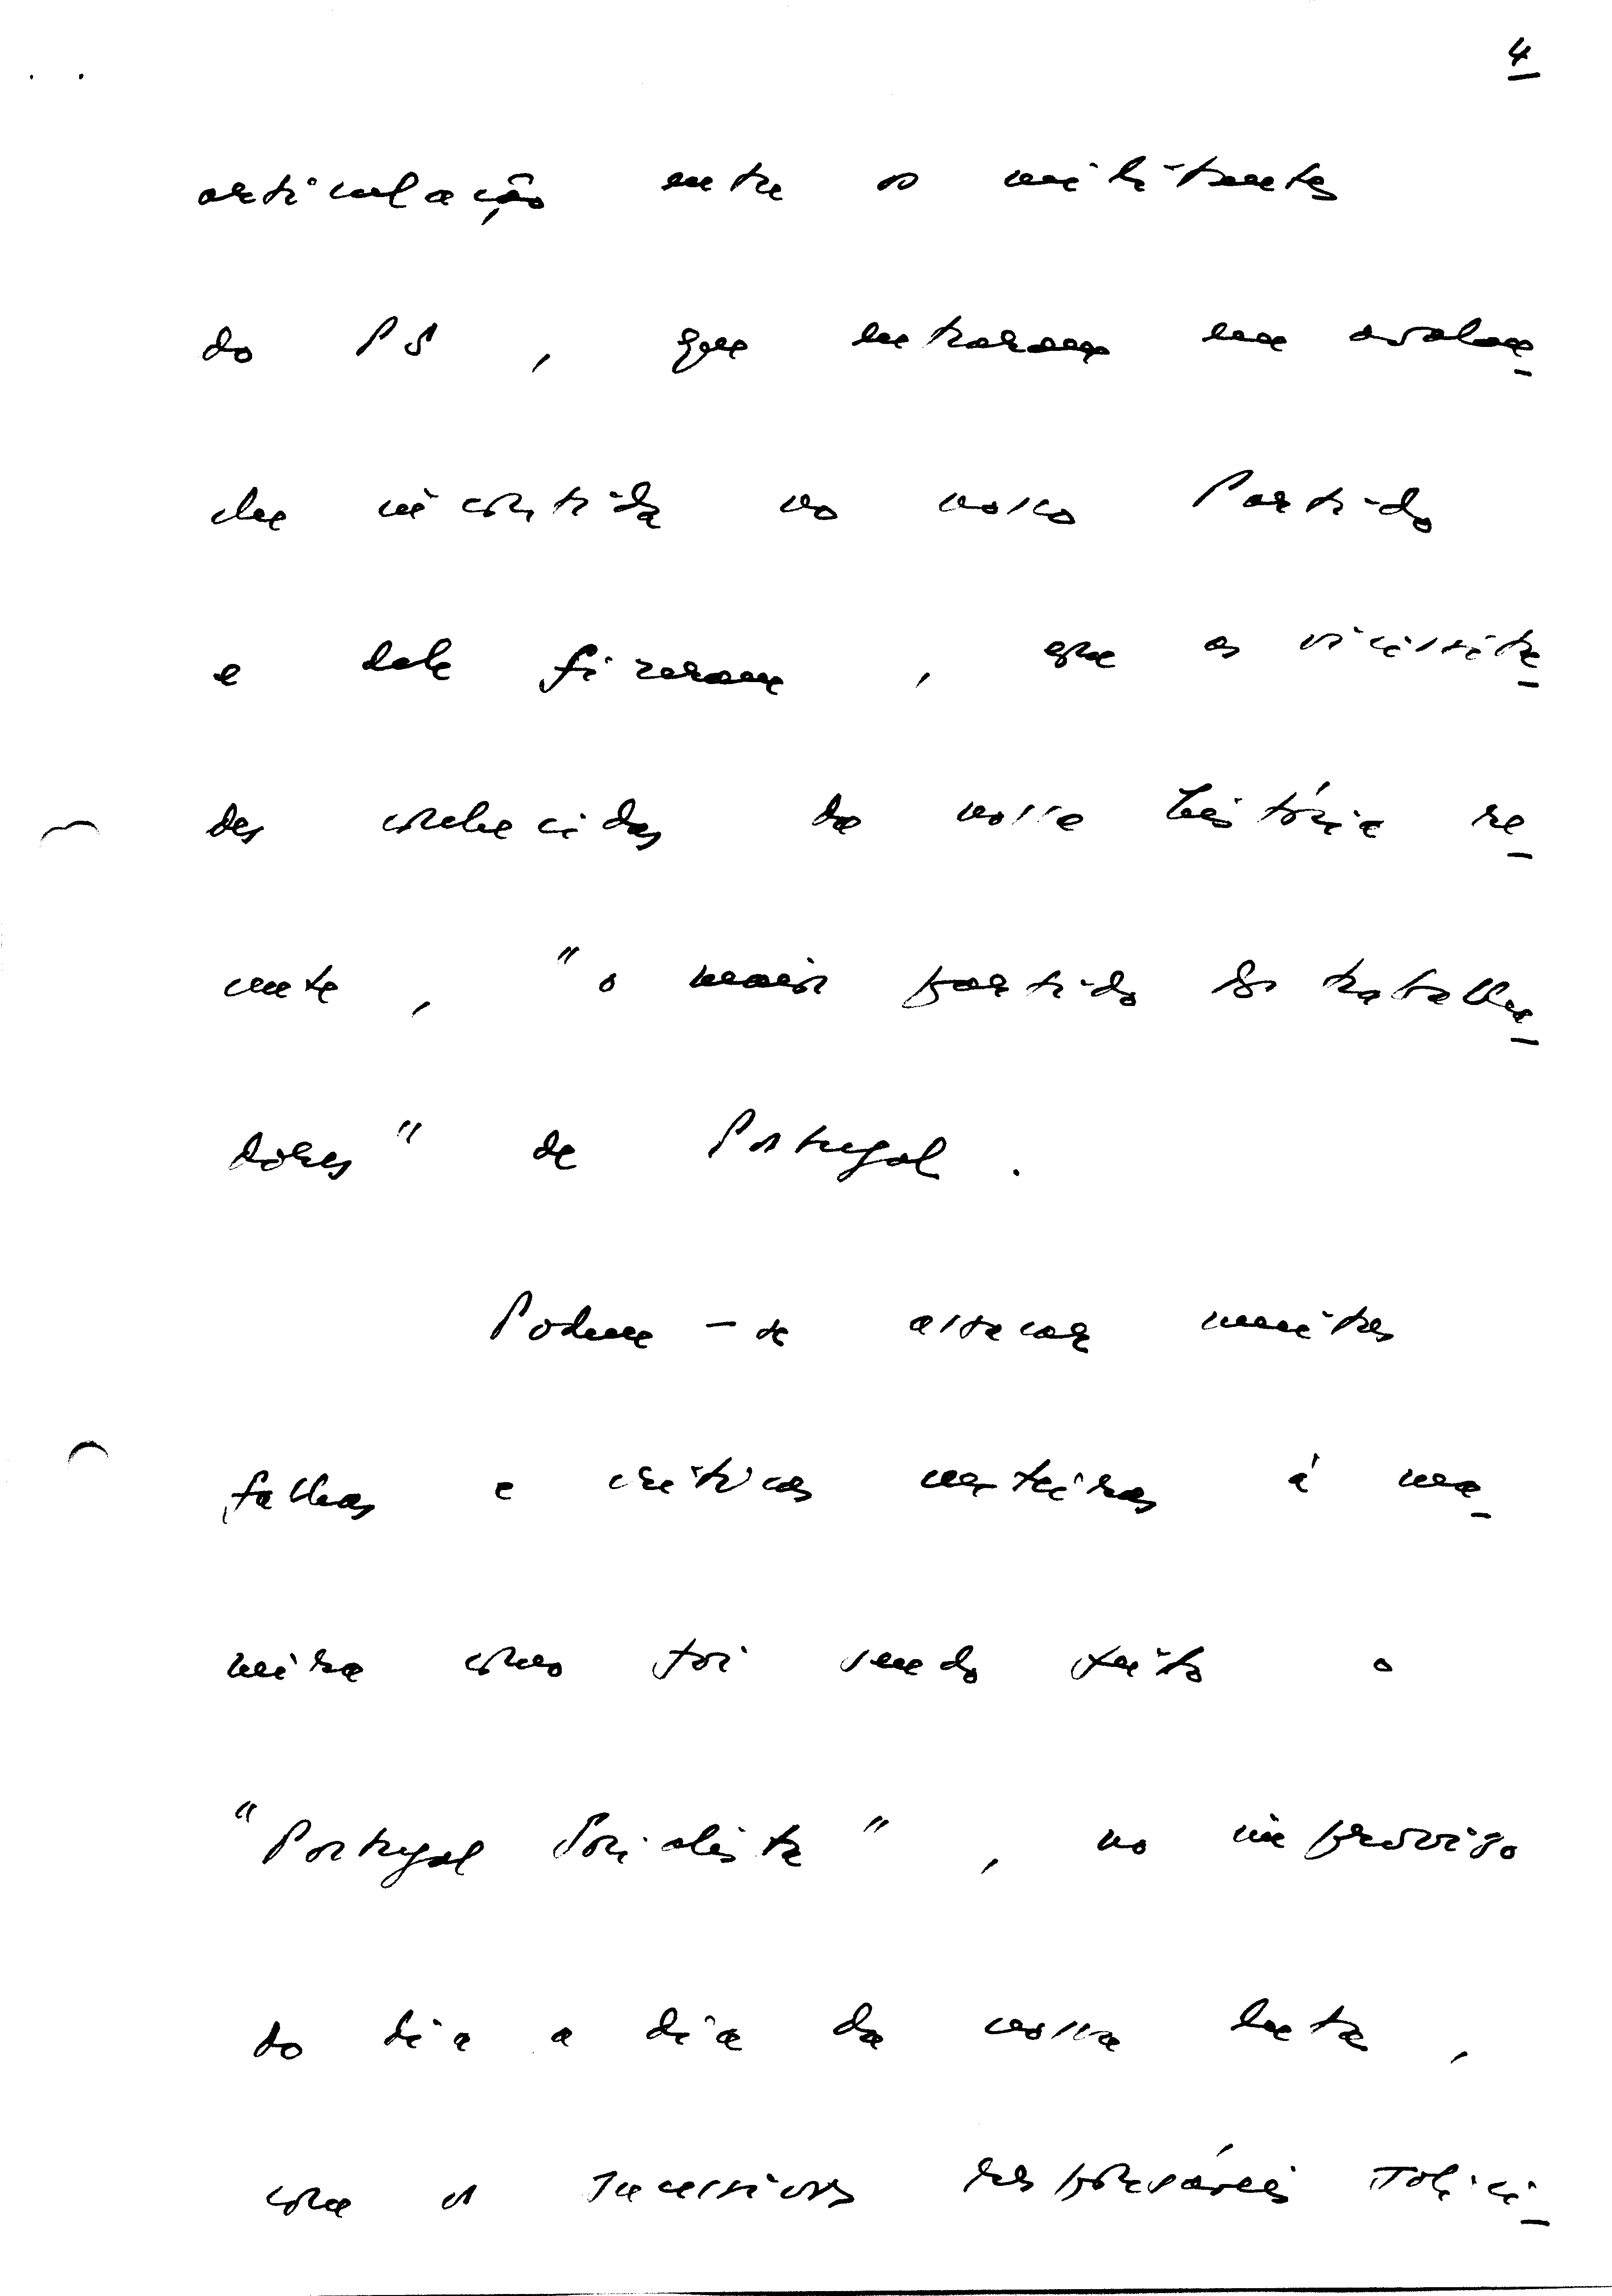 4
articulação entre os militantes
do PS, que entraram em avalan
che incontida no nosso Partido
e dele fizeram, que as vicissitu
des conhecidas da nossa história re
cente, "o maior partido dos trabalha
dores" de Portugal.
Podem-se assacar muitas
falhas e críticas certeiras à ma
neira como foi sendo feito o
"Portugal Socialista", no improviso
do dia a dia da nossa luta,
com os sucessivos responsáveis solici